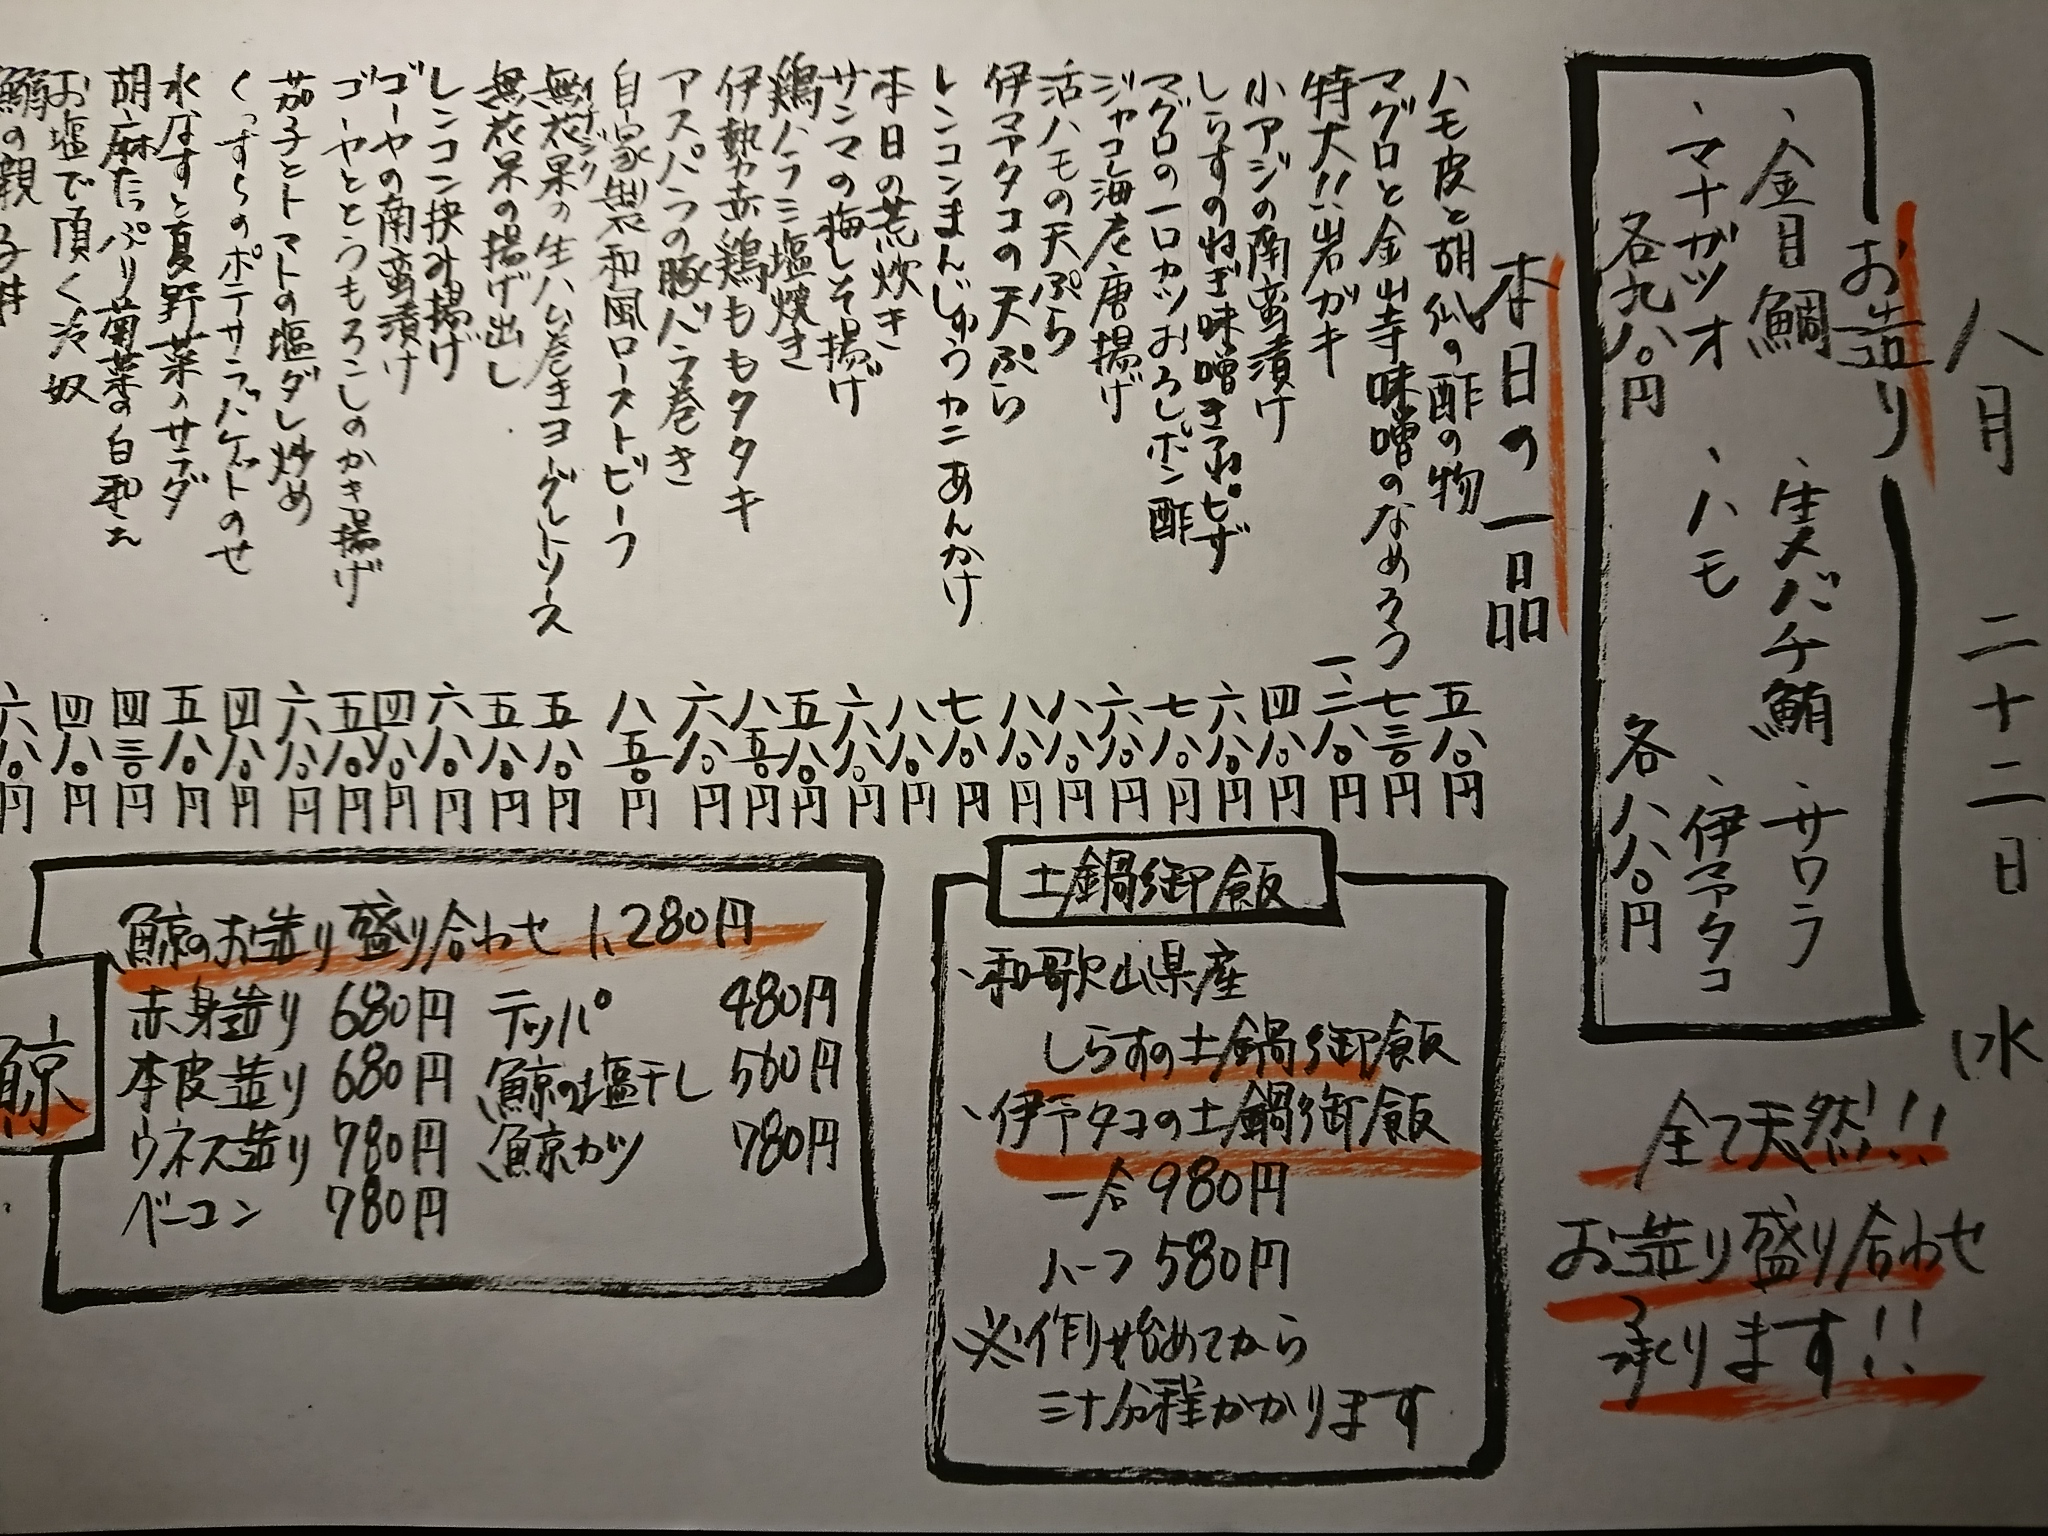 八月 二十二日 (水
お造り
、金目鯛 、生メバチ鮪 、サワラ
、マナガツオ 、ハモ 、伊予タコ
各九八〇円 各八八〇円
全て天然!!
お造り盛り合わせ
承ります!!
本日の一品
ハモ皮と胡瓜の酢の物 五八〇円
マグロと金山寺味噌のなめろう 七三〇円
特大!!岩ガキ 一三八〇円
小アジの南蛮漬け 四八〇円
しらすのねぎ味噌きつねピザ 六八〇円
マグロの一口カツおろしポン酢 七八〇円
ジャコ海老唐揚げ 六八〇円
活ハモの天ぷら 八八〇円
伊予タコの天ぷら 八八〇円
レンコンまんじゅうカニあんかけ 七八〇円
本日の荒炊き 八八〇円
サンマの梅しそ揚げ 六八〇円
鶏ハラミ塩焼き 五八〇円
伊勢赤鶏ももタタキ 八五〇円
アスパラの豚バラ巻き 六八〇円
自家製和風ローストビーフ 八五〇円
無花果の生ハム巻きヨーグルトソース 五八〇円
イチジク
無花果の揚げ出し 五八〇円
レンコン挟み揚げ 六八〇円
ゴーヤの南蛮漬け 四八〇円
ゴーヤととうもろこしのかき揚げ 五八〇円
茄子とトマトの塩ダレ炒め 六八〇円
くっすらのポテサラバケットのせ 四八〇円
水なすと夏野菜のサラダ 五八〇円
胡麻たっぷり菊菜の白和え 四三〇円
お塩で頂く冷奴 四八〇円
鯛の親子丼 六八〇円
土鍋御飯
、和歌山県産
しらすの土鍋御飯
、伊予タコの土鍋御飯
一合 980円
ハーフ 580円
※作り始めてから
三十分程かかります
鯨
鯨のお造り盛り合わせ 1,280円
赤身造り 680円 テッパ 480円
本皮造り 680円 鯨の塩干し 560円
ウネス造り 780円 鯨カツ 780円
ベーコン 780円